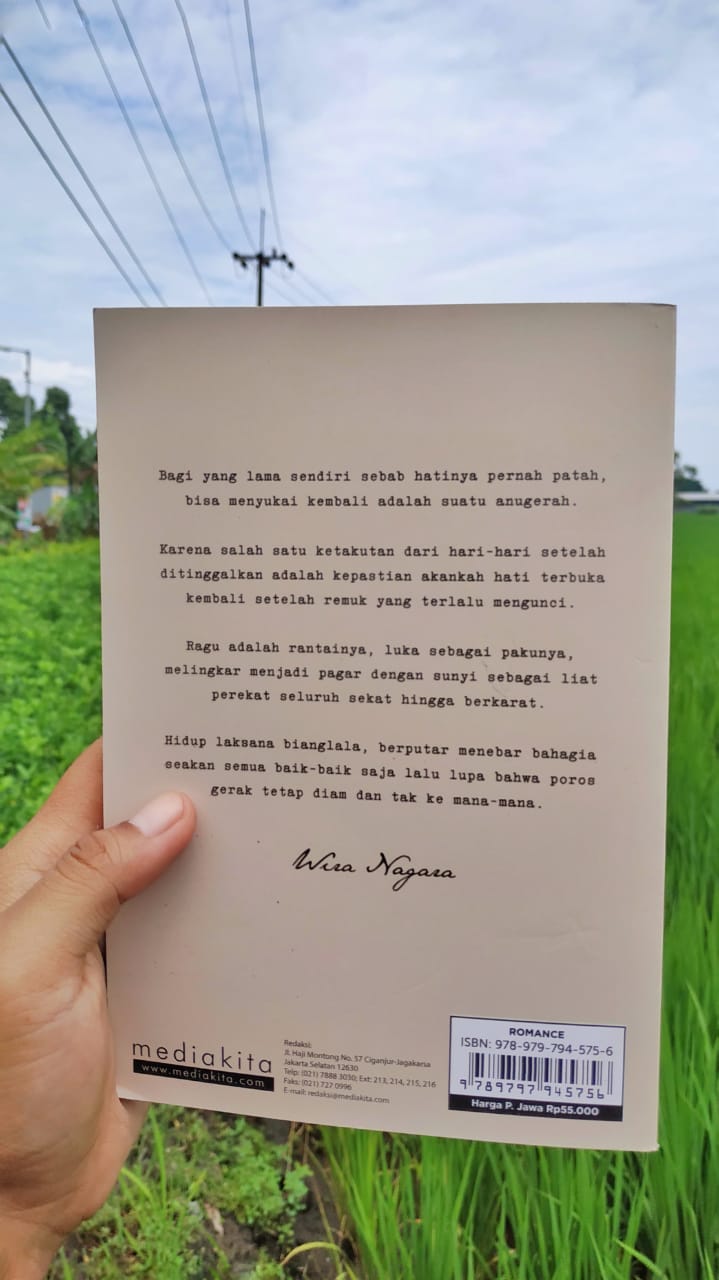 Bagi yang lama sendiri sebab hatinya pernah patah,
bisa menyukai kembali adalah suatu anugerah.
Karena salah satu ketakutan dari hari-hari setelah
ditinggalkan adalah kepastian akankah hati terbuka
kembali setelah remuk yang terlalu mengunci.
Ragu adalah rantainya, luka sebagai pakunya,
melingkar menjadi pagar dengan sunyi sebagai liat
perekat seluruh sekat hingga berkarat.
Hidup laksana bianglala, berputar menebar bahagia
seakan semua baik-baik saja lalu lupa bahwa poros
gerak tetap diam dan tak ke mana-mana.
Wira Nagara
mediakita
www.mediakita.com
Redaksi:
Jl. Haji Montong No. 57 Ciganjur-Jagakarsa
Jakarta Selatan 12630
Telp: (021) 7888 3030; Ext: 213, 214, 215, 216
Faks: (021) 727 0996
E-mail: redaksi@mediakita.com
ROMANCE
ISBN: 978-979-794-575-6
9 789797 945756
Harga P. Jawa Rp55.000